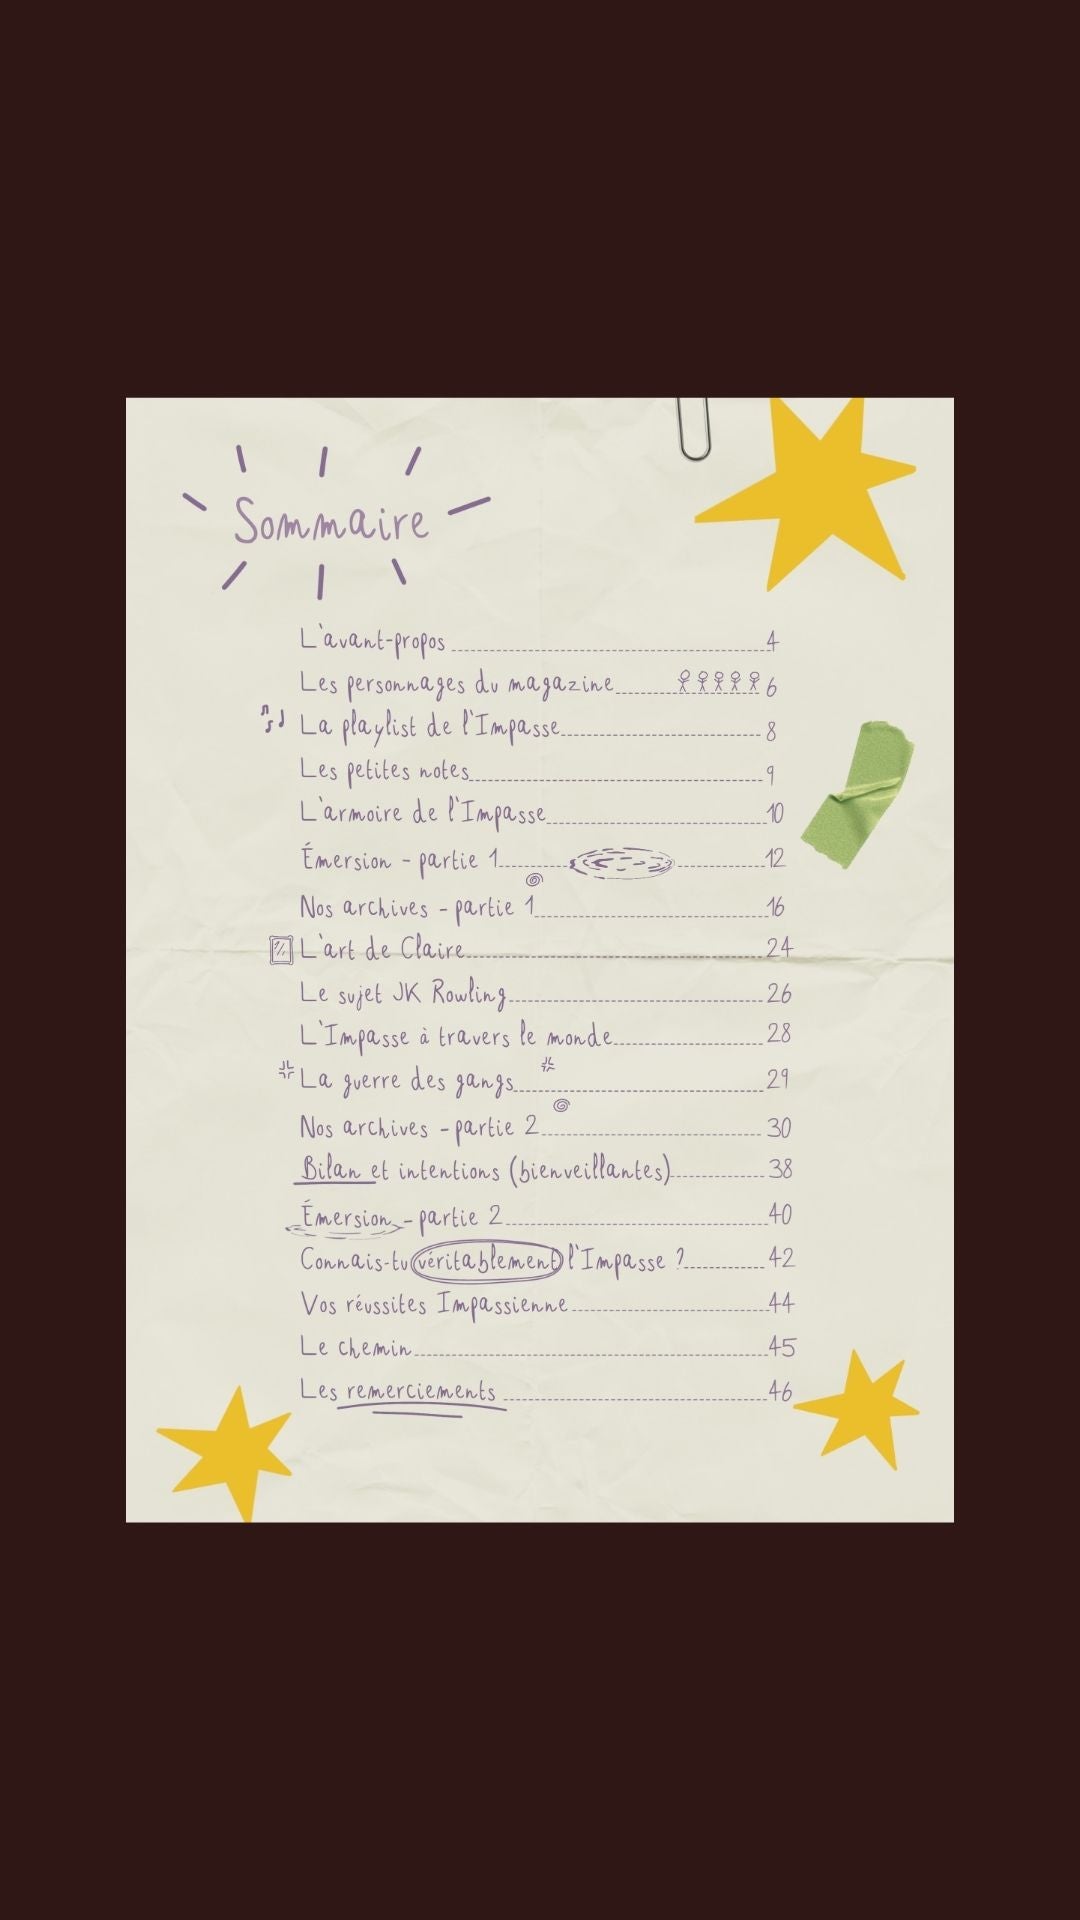 Sommaire
L'avant-propos 4
Les personnages du magazine 6
La playlist de l'Impasse 8
Les petites notes 9
L'armoire de l'Impasse 10
Émersion - partie 1 12
Nos archives - partie 1 16
L'art de Claire 24
Le sujet JK Rowling 26
L'Impasse à travers le monde 28
La guerre des gangs 29
Nos archives - partie 2 30
Bilan et intentions (bienveillantes) 38
Émersion - partie 2 40
Connais-tu véritablement l'Impasse ? 42
Vos réussites Impassienne 44
Le chemin 45
Les remerciements 46